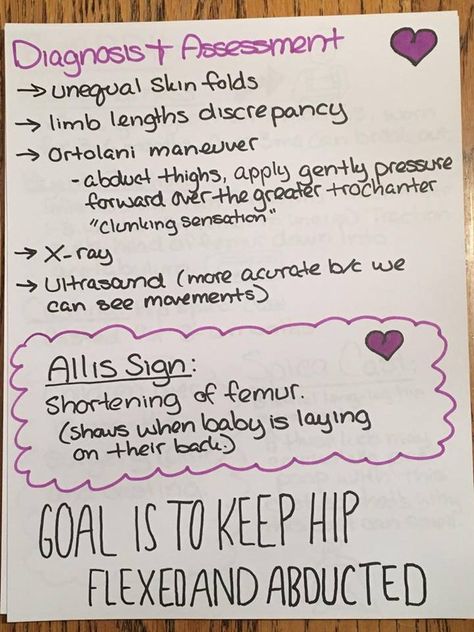 Diagnosis + Assessment
→ unequal skin folds
→ limb lengths discrepancy
→ Ortolani maneuver
- abduct thighs, apply gently pressure
forward over the greater trochanter
"clunking sensation"
→ X-ray
→ Ultrasound (more acurate b/c we
can see movements)
Allis Sign:
Shortening of femur.
(shows when baby is laying
on their back.)
GOAL IS TO KEEP HIP
FLEXED AND ABDUCTED